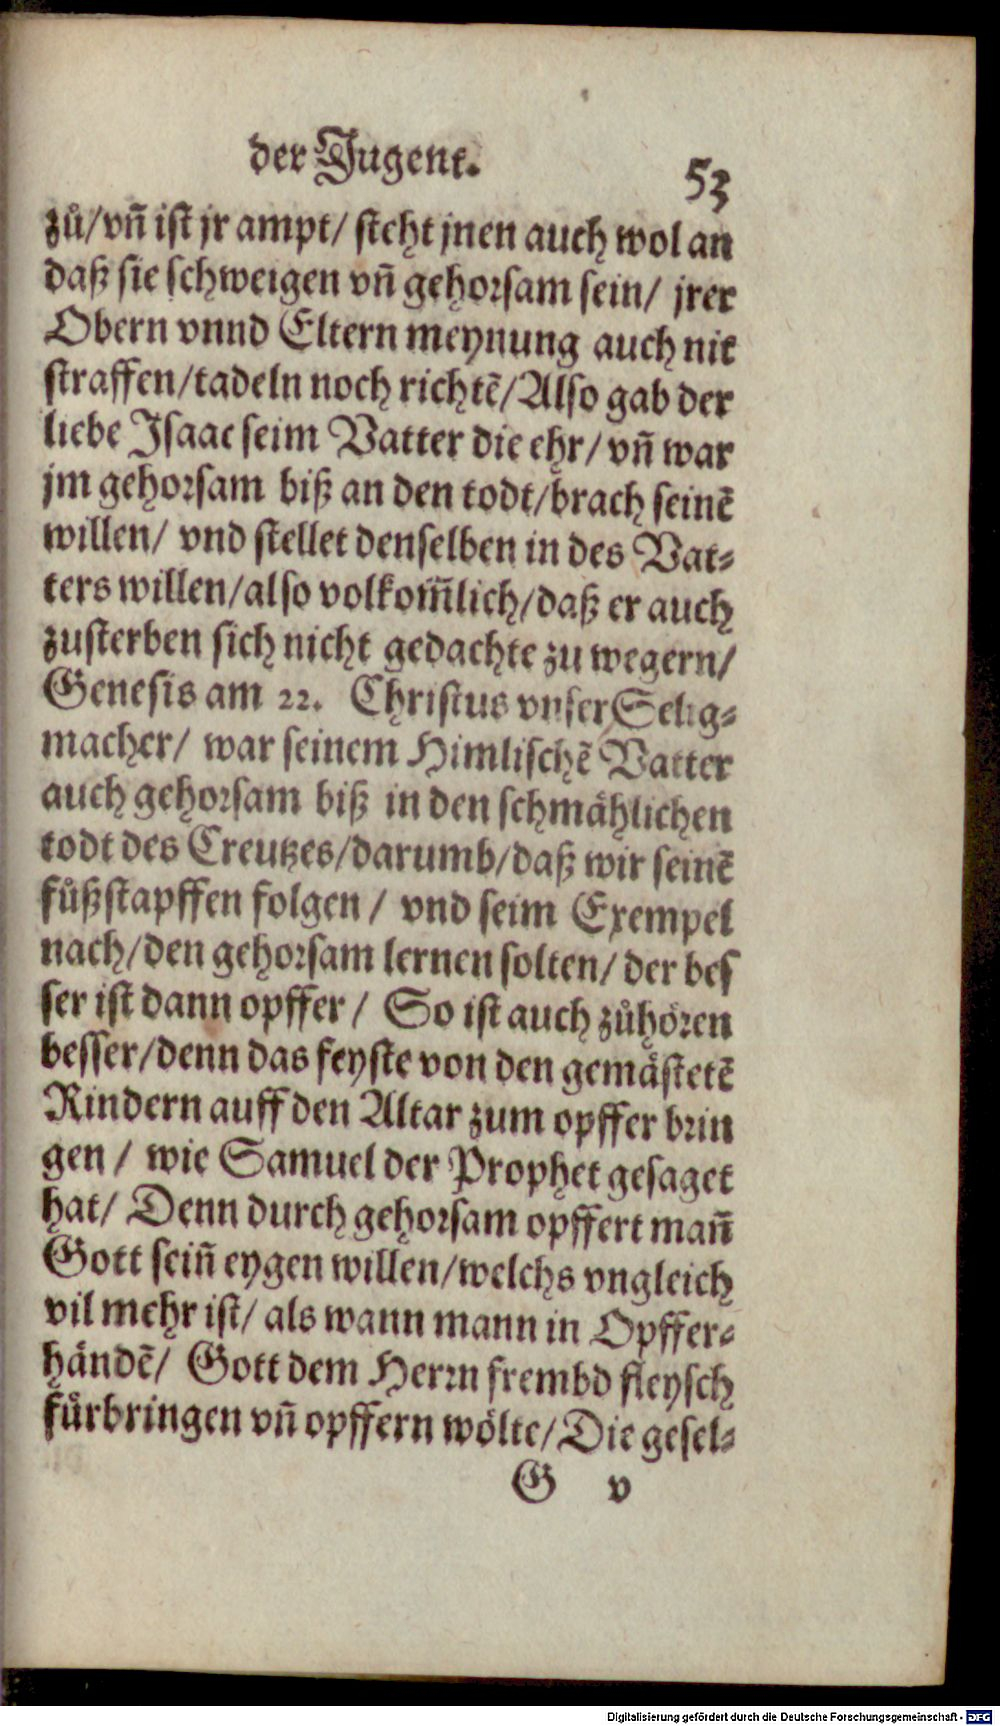 der Jugent.
53
zů/vñ ist jr ampt/ steht jnen auch wol an
daß sie schweigen vñ gehorsam sein/ jrer
Obern vnnd Eltern meynung auch nit
straffen/tadeln noch richtẽ/Also gab der
liebe Isaac seim Vatter die ehr/ vñ war
jm gehorsam biß an den todt/brach seinẽ
willen/ vnd stellet denselben in des Vat⸗
ters willen/also volkom̃lich/daß er auch
zusterben sich nicht gedachte zu wegern/
Genesis am 22. Christus vnser Selig⸗
macher/ war seinem Himlischẽ Vatter
auch gehorsam biß in den schmählichen
todt des Creutzes/darumb/daß wir seinẽ
fůßstapffen folgen / vnd seim Exempel
nach/den gehorsam lernen solten/ der bes
ser ist dann opffer / So ist auch zůhören
besser/denn das feyste von den gemästetẽ
Rindern auff den Altar zum opffer brin
gen / wie Samuel der Prophet gesaget
hat/ Denn durch gehorsam opffert mañ
Gott seiñ eygen willen/welchs vngleich
vil mehr ist/ als wann mann in Opffer⸗
händẽ/ Gott dem Herrn frembd fleysch
fürbringen vñ opffern wölte/Die gesel⸗
G v
Digitalisierung gefördert durch die Deutsche Forschungsgemeinschaft - DFG